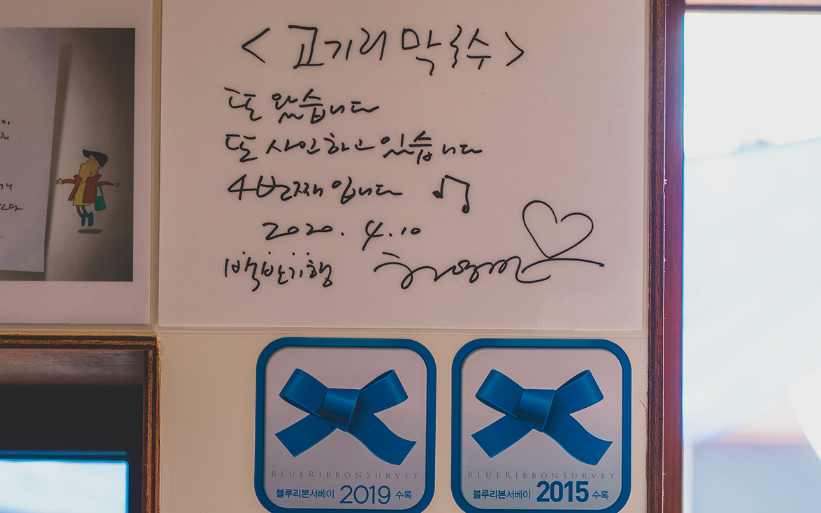 <고기리 막국수>
또 왔습니다
또 사인하고 있습니다
4번째 입니다
2020. 4. 10
백반기행 허영만
BLUE RIBBON SURVEY
블루리본서베이 2019 수록
BLUE RIBBON SURVEY
블루리본서베이 2015 수록